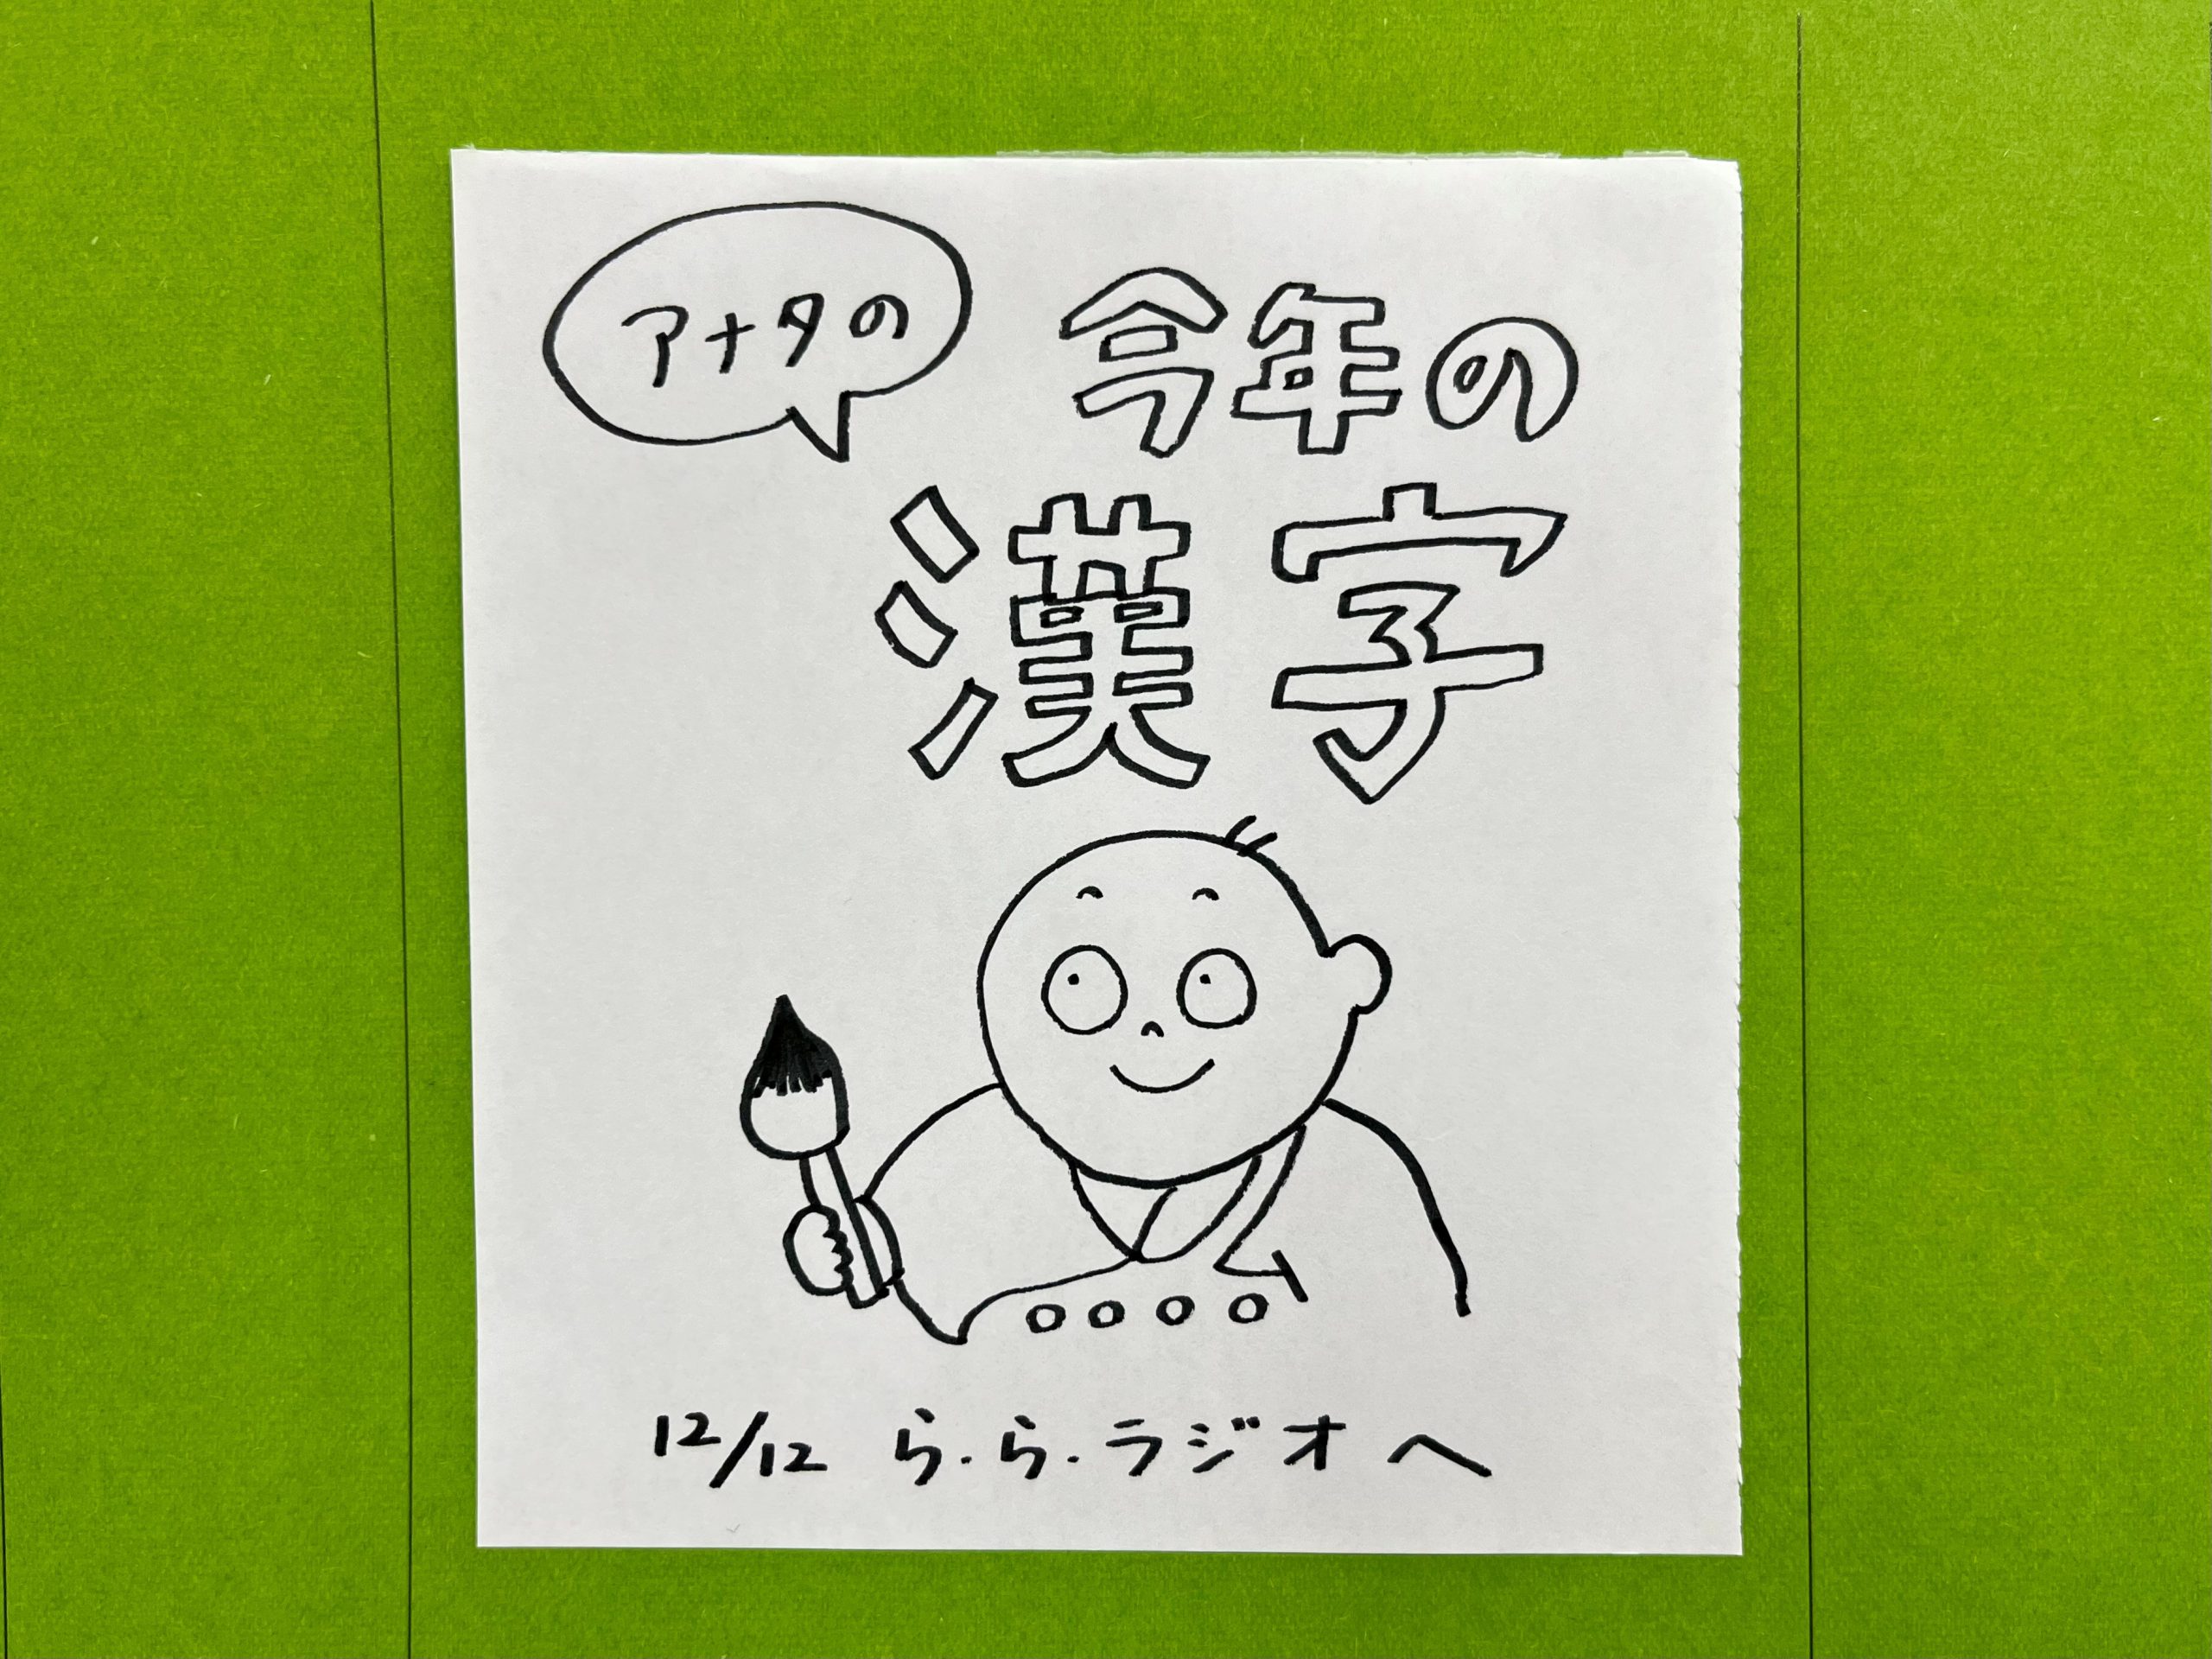 アナタの
今年の
漢字
12/12 ら.ら.ラジオへ